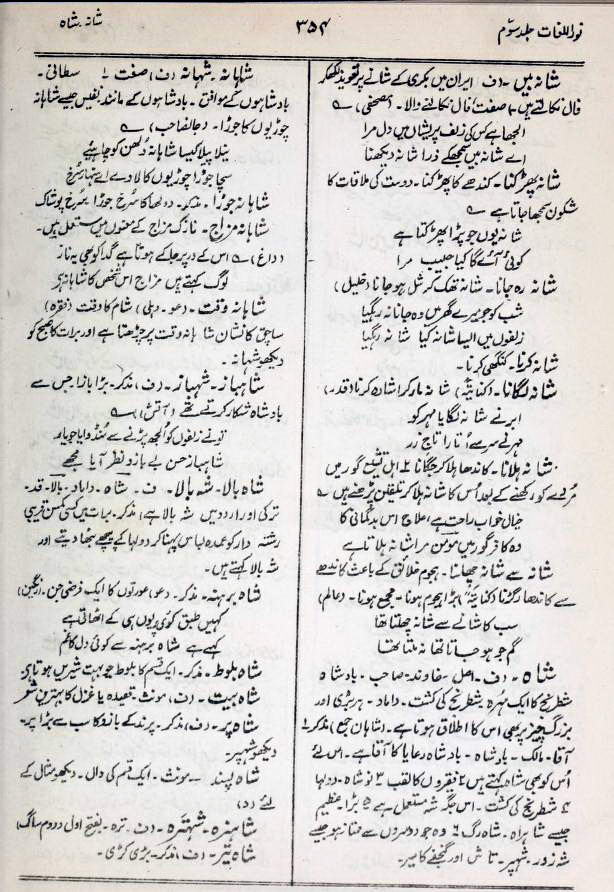 نوراللغات جلد سوّم
۳۵۴
شانہ۔شاہ
شانہ بیں۔ (ف) ایران میں بکری کے شانے پر تعویذ لکھکر
فال نکالتے ہیں، صفت، فال نکالنے والا۔ (مصحفی) ؎
الجھا ہے کس کی زلف پریشاں میں دل مرا
اے شانہ بیں سمجھ کے ذرا شانہ دیکھنا
شانہ پھڑکنا۔ کندھے کا پھڑکنا۔ دوست کی ملاقات کا
شگون سمجھا جاتا ہے ؎
شانہ یوں جو پڑا پھڑکتا ہے
کوئی آئے گا کیا حبیب مرا
شانہ رہ جانا۔ شانہ تھک کر شل ہو جانا (خلیل)
شب کو جو میرے گھر میں وہ جانا نہ رہ گیا
زلفوں میں ایسا شانہ کیا شانہ رہ گیا
شانہ کرنا۔ کنگھی کرنا۔
شانہ لگانا۔ (کنایۃً) شانہ مار کر اشارہ کرنا (قدر)
ابر نے شانہ لگایا مہر کو
مہر نے سر سے اُتارا تاج زر
شانہ ہلانا۔ کاندھا ہلا کر جگانا ۲۔ اہل تشیع گور میں
مردے کو رکھنے کے بعد اُس کا شانہ ہلا کر تلقین پڑھتے ہیں ؎
خیال خواب راحت ہے، علاج اس بدگمانی کا
وہ کافر گور میں مومن مرا شانہ ہلاتا ہے
شانہ سے شانہ چھلنا۔ ہجوم خلائق کے باعث کاندھے
سے کاندھا رگڑنا (کنایۃً) بڑا ہجوم ہونا۔ مجمع ہونا۔ (عالم)
سب کا شانے سے شانہ چھلتا تھا
گم جو ہو جاتا تھا نہ ملتا تھا
شاہ۔ (ف۔ اصل۔ خاوند۔ صاحب۔ بادشاہ
شطرنج کا ایک مُہرہ۔ شطرنج کی کشت۔ داماد۔ ہر بڑی اور
بزرگ چیز پر بھی اس کا اطلاق ہوتا ہے۔ (شاہان جمع) مذکر ۱
آقا۔ مالک۔ بادشاہ۔ بادشاہ رعایا کا آقا ہے۔ اس لئے
اُس کو بھی شاہ کہتے ہیں ۲ فقروں کا لقب ۳ نوشاہ۔ دولہا
۴ شطرنج کی کشت۔ اس جگہ شہ مستعمل ہے ۵ بڑا۔ عظیم
جیسے شاہراہ۔ شاہ رگ ۶ وہ جو دوسروں سے ممتاز ہو جیسے
شہ زور۔ شہپر۔ تاش اور گنجفے کا میر۔
شاہانہ۔ شہانہ (ف) صفت ۱ سلطانی۔
بادشاہوں کے موافق۔ بادشاہوں کے مانند نفیس جیسے شاہانہ
چوڑیوں کا جوڑا۔ (جانصاحب) ؎
پیلا پیلا کیسا شاہانہ دُلھن کو چاہیے
سچا جوڑا چوڑیوں کا لا دے اے منہار سُرخ
شاہانہ جوڑا۔ مذکر۔ دولھا کا سُرخ جوڑا۔ سُرخ پوشاک
شاہانہ مزاج۔ نازک مزاج کے معنوں میں مستعمل ہیں۔
(داغ) ؎ اس کے در پر جاکے ہوتا ہے گدا کو بھی یہ ناز
لوگ کہتے ہیں مزاج اس شخص کا شاہانہ ہے
شاہانہ وقت۔ (عو۔ دہلی) شام کا وقت (فقرہ)
ساچق کا نشان شاہانہ وقت پر چڑھتا ہے اور برات کا صبح کو
دیکھو شہانہ۔
شاہباز۔ شہباز۔ (ف) مذکر۔ بڑا باز، جس سے
بادشاہ شکار کرتے تھے (آتش) ؎
تو نے زلفوں کو اُلجھ پڑنے سے منڈوایا جو یار
شاہباز حسن بے بازو نظر آیا مجھے
شاہ بالا۔ شہ بالا۔ ف۔ شاہ۔ داماد۔ بالا۔ قد۔
ترکی اور اردو میں شہ بالا ہے) مذکر۔ برات میں کسی کمسن قریبی
رشتہ دار کو عمدہ لباس پہنا کر دولہا کے پیچھے بٹھا دیتے اور
شہ بالا کہتے ہیں۔
شاہ برہنہ۔ مذکر۔ (عو) عورتوں کا ایک فرضی جن۔ (رنگین)
کہیں طبق کوئی پریوں ہی کے اٹھاتی ہے
کہے ہے شاہ برہنہ سے کوئی دل کا غم
شاہ بلوط۔ مذکر۔ ایک قسم کا بلوط جو بہت شیریں ہوتا ہے
شاہ بیت۔ (ف)، مونث۔ قصیدہ یا غزل کا بہترین شعر
شاہ پر۔ (ف)، مذکر۔ پرند کے بازو کا سب سے بڑا پر۔
دیکھو شہپر۔
شاہ پسند۔ مونث۔ ایک قسم کی دال۔ دیکھو مثال کے
لئے (د)
شاہترہ۔ شہترہ۔ (ف۔ ترہ۔ بفتح اول و دوم ساگ)
شاہ تیر۔ (ف)، مذکر۔ بڑی کڑی۔